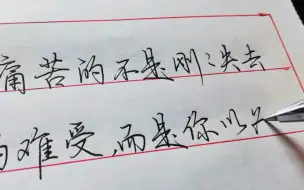 痛苦的不是刚刚失去
的难受，而是你以为